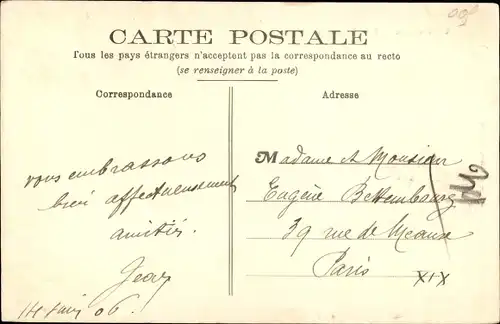 CARTE POSTALE
Tous les pays étrangers n'acceptent pas la correspondance au recto
(se renseigner à la poste)
Correspondance
vous embrassons
bien affectueusement
amitiés.
14 Juin 06.
Adresse
Madame et Monsieur
Eugène Bettembourg
39 rue de Meaux
Paris XIX